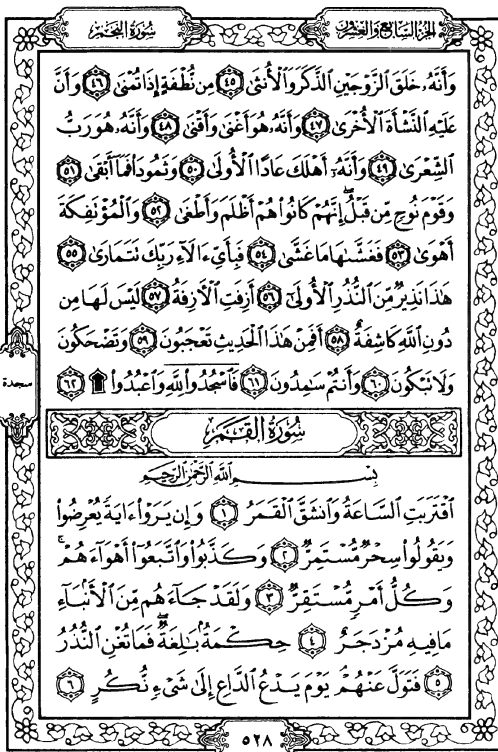 الجزء السابع والعشرون
سورة النجم
وَأَنَّهُۥ خَلَقَ ٱلزَّوْجَيْنِ ٱلذَّكَرَ وَٱلْأُنثَىٰ ٤٥ مِن نُّطْفَةٍ إِذَا تُمْنَىٰ ٤٦ وَأَنَّ
عَلَيْهِ ٱلنَّشْأَةَ ٱلْأُخْرَىٰ ٤٧ وَأَنَّهُۥ هُوَ أَغْنَىٰ وَأَقْنَىٰ ٤٨ وَأَنَّهُۥ هُوَ رَبُّ
ٱلشِّعْرَىٰ ٤٩ وَأَنَّهُۥٓ أَهْلَكَ عَادًا ٱلْأُولَىٰ ٥٠ وَثَمُودَا۟ فَمَآ أَبْقَىٰ ٥١
وَقَوْمَ نُوحٍ مِّن قَبْلُ ۖ إِنَّهُمْ كَانُوا۟ هُمْ أَظْلَمَ وَأَطْغَىٰ ٥٢ وَٱلْمُؤْتَفِكَةَ
أَهْوَىٰ ٥٣ فَغَشَّىٰهَا مَا غَشَّىٰ ٥٤ فَبِأَىِّ ءَالَآءِ رَبِّكَ تَتَمَارَىٰ ٥٥
هَٰذَا نَذِيرٌ مِّنَ ٱلنُّذُرِ ٱلْأُولَىٰٓ ٥٦ أَزِفَتِ ٱلْءَازِفَةُ ٥٧ لَيْسَ لَهَا مِن
دُونِ ٱللَّهِ كَاشِفَةٌ ٥٨ أَفَمِنْ هَٰذَا ٱلْحَدِيثِ تَعْجَبُونَ ٥٩ وَتَضْحَكُونَ
وَلَا تَبْكُونَ ٦٠ وَأَنتُمْ سَٰمِدُونَ ٦١ فَٱسْجُدُوا۟ لِلَّهِ وَٱعْبُدُوا۟ ۩ ٦٢
سجدة
سورة القمر
بسم الله الرحمن الرحيم
ٱقْتَرَبَتِ ٱلسَّاعَةُ وَٱنشَقَّ ٱلْقَمَرُ ١ وَإِن يَرَوْا۟ ءَايَةً يُعْرِضُوا۟
وَيَقُولُوا۟ سِحْرٌ مُّسْتَمِرٌّ ٢ وَكَذَّبُوا۟ وَٱتَّبَعُوٓا۟ أَهْوَآءَهُمْ ۚ
وَكُلُّ أَمْرٍ مُّسْتَقِرٌّ ٣ وَلَقَدْ جَآءَهُم مِّنَ ٱلْأَنۢبَآءِ
مَا فِيهِ مُزْدَجَرٌ ٤ حِكْمَةٌۢ بَٰلِغَةٌ ۖ فَمَا تُغْنِ ٱلنُّذُرُ
٥ فَتَوَلَّ عَنْهُمْ ۘ يَوْمَ يَدْعُ ٱلدَّاعِ إِلَىٰ شَىْءٍ نُّكُرٍ ٦
٥٢٨